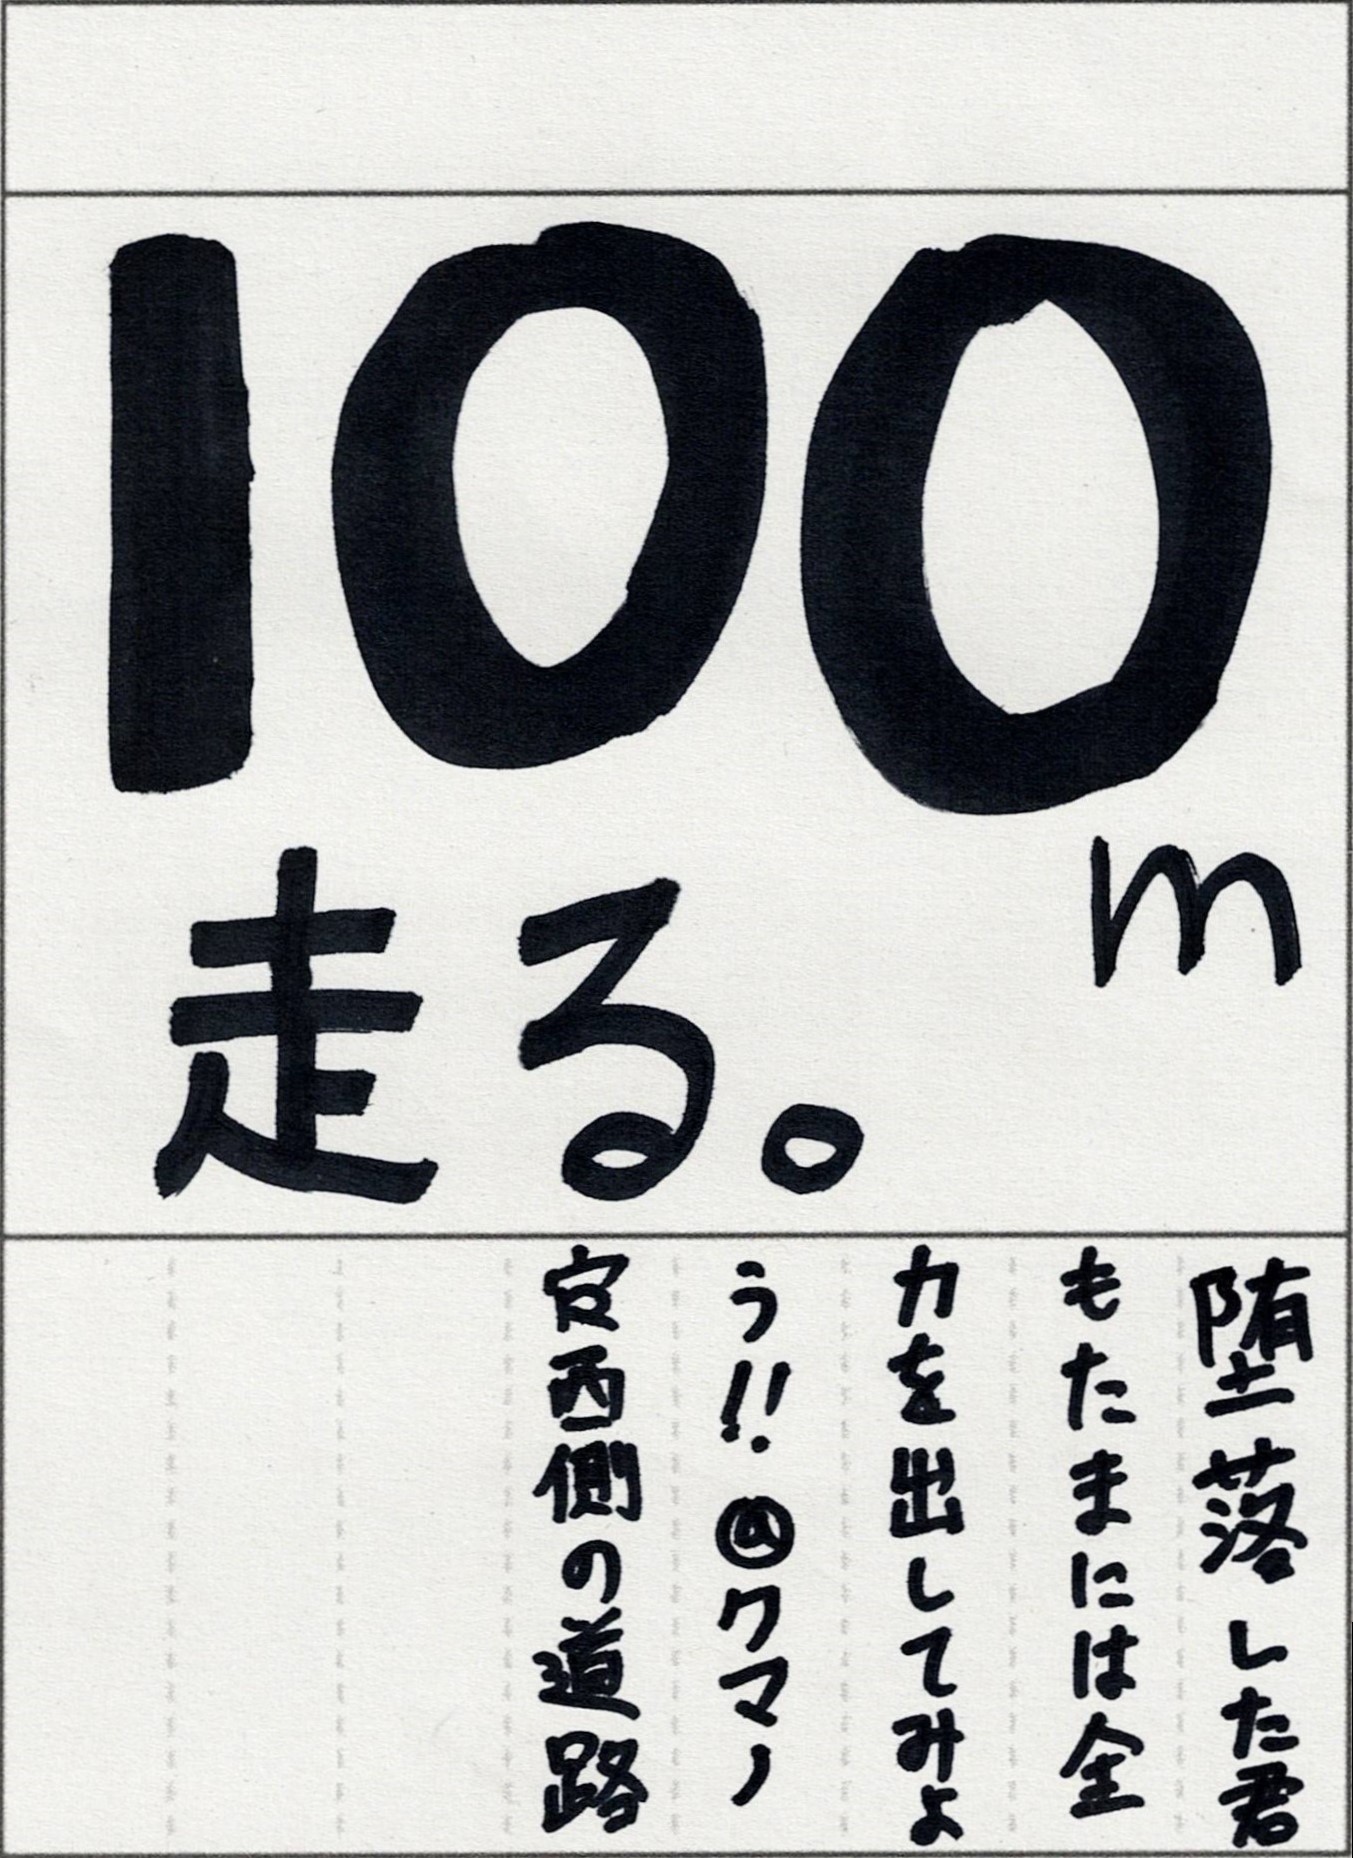 100
m
走る。
堕落した君
もたまには全
力を出してみよ
う!! @クマノ
寮西側の道路